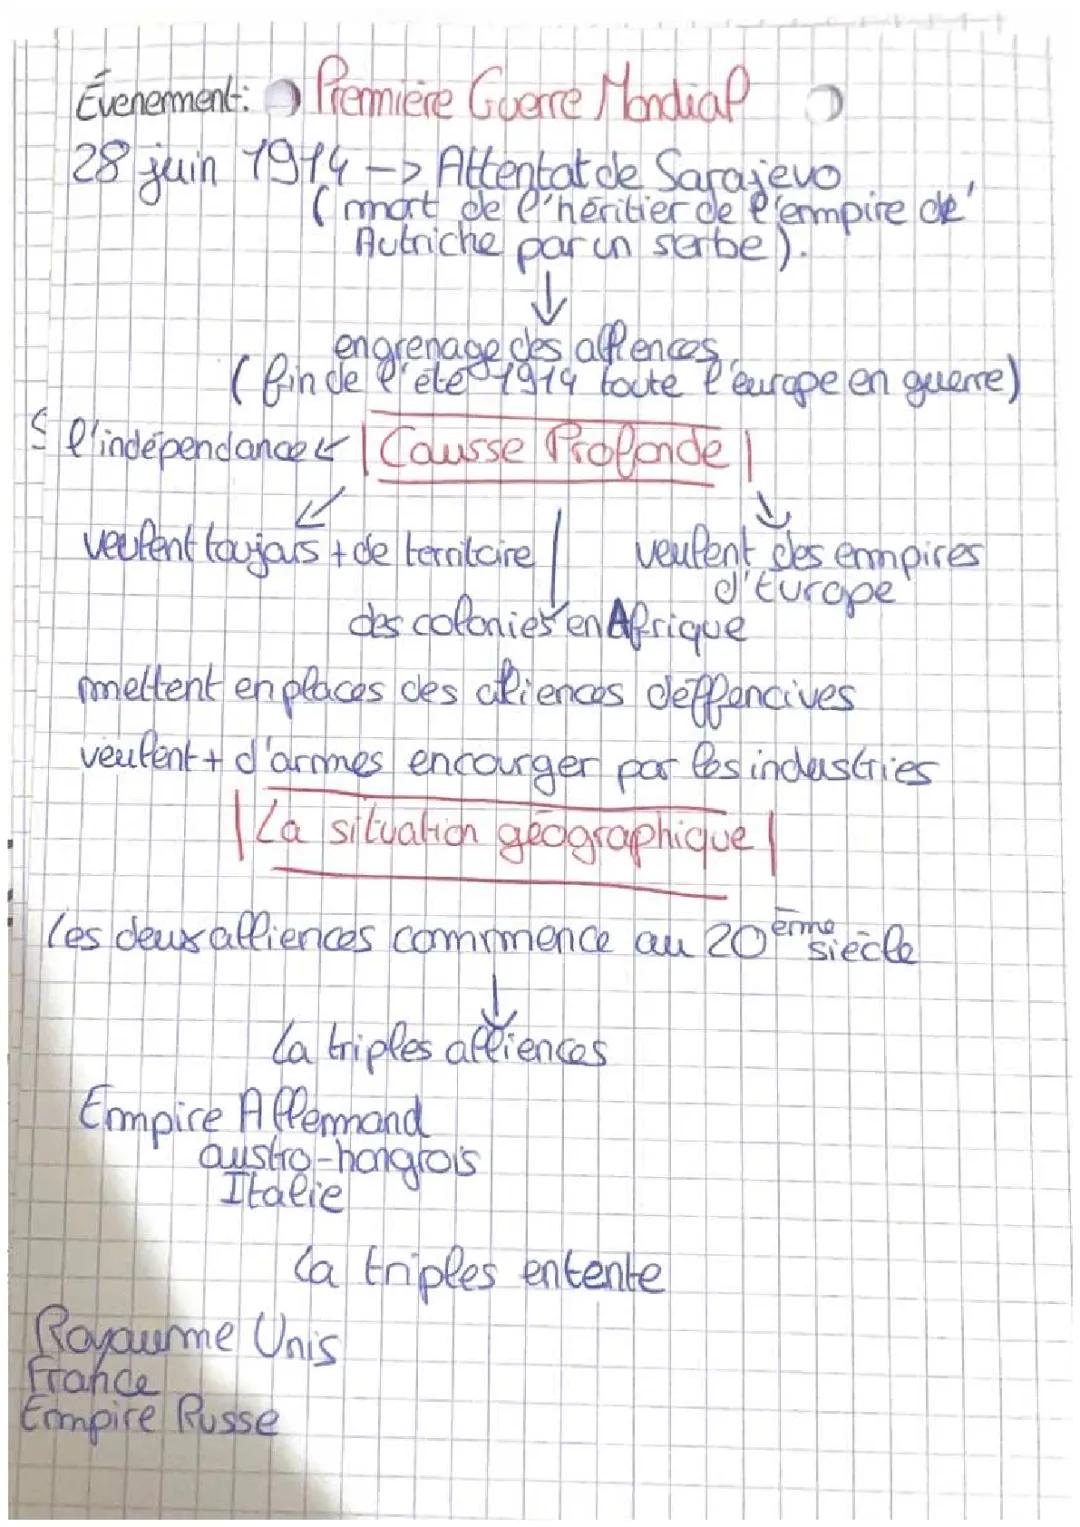 Évenement: Première Guerre Mondial
28 juin 1914 -> Attentat de Sarajevo
(mort de l'héritier de l'empire de'
Autriche par un serbe).
engrenage des allences
(fin de l'été 1914 toute l'europe en guerre)
l'indépendance Causse Profonde
veulent toujours + de territoire veulent des empires
d'Europe
des colonies en Afrique
mettent en places des aliences déffencives
veulent + d'armes encourger par les industries
La situation géographique
les deux alliences commmence au 20ème siècle
la triples alliences
Empire Allemand
austro-hongrois
Italie
la triples entente
Royaume Unis
France
Empire Russe